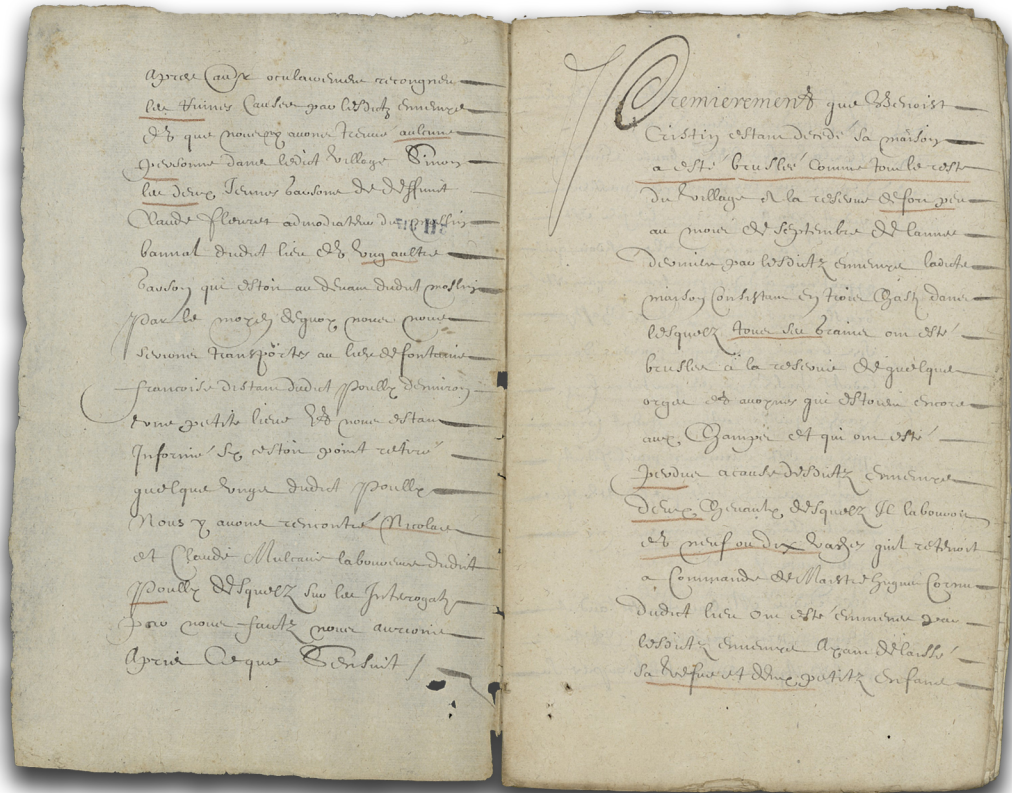 Apres avoir oculairement recongneu
les ruines causees par lesdictz ennemys
et que nous n'y avons treuvé aulcune
personne dans ledict village Sinon
les deux jeunes garsons de deffunct
Claude Fleuret admodiateur du moslin
bannal dudict lieu et ung aultre
garson qui estoit au devant dudict moslin
Par le moyen dequoy nous nous
serions transportes au lieu de fontaine
francoise distant dudict Poully denviron
une petite lieue et nous estans
Informé sy cestoit point retiré
quelque ungs dudict Poully
Nous y avons rencontré Nicolas
et Claude laboureurs dudict
Poully desquelz sur les Interogatz
par nous faictz nous aurions
Apris Ce que Sensuit /
Premierement que Benoist
Cristin estant decedé sa maison
a esté bruslee comme tout le reste
du village A la reserve de fort peu
au mois de septembre de lannee
derniere par lesdictz ennemys ladicte
maison consistant en trois Chasz dans
lesquelz tous ses grains ont esté
bruslez à la reserve de quelque
orges et avoynes qui estoient encore
aux Champs et qui ont esté
perdues a cause desdictz ennemys
deux Chevaulx desquelz Il labouroit
et neuf ou dix vaches quil retenoit
a Commande de Maistre Hugues Cornu
dudict lieu ont esté emmenes par
lesdictz ennemys Ayant délaissé
sa vefve et deux petitz enfans